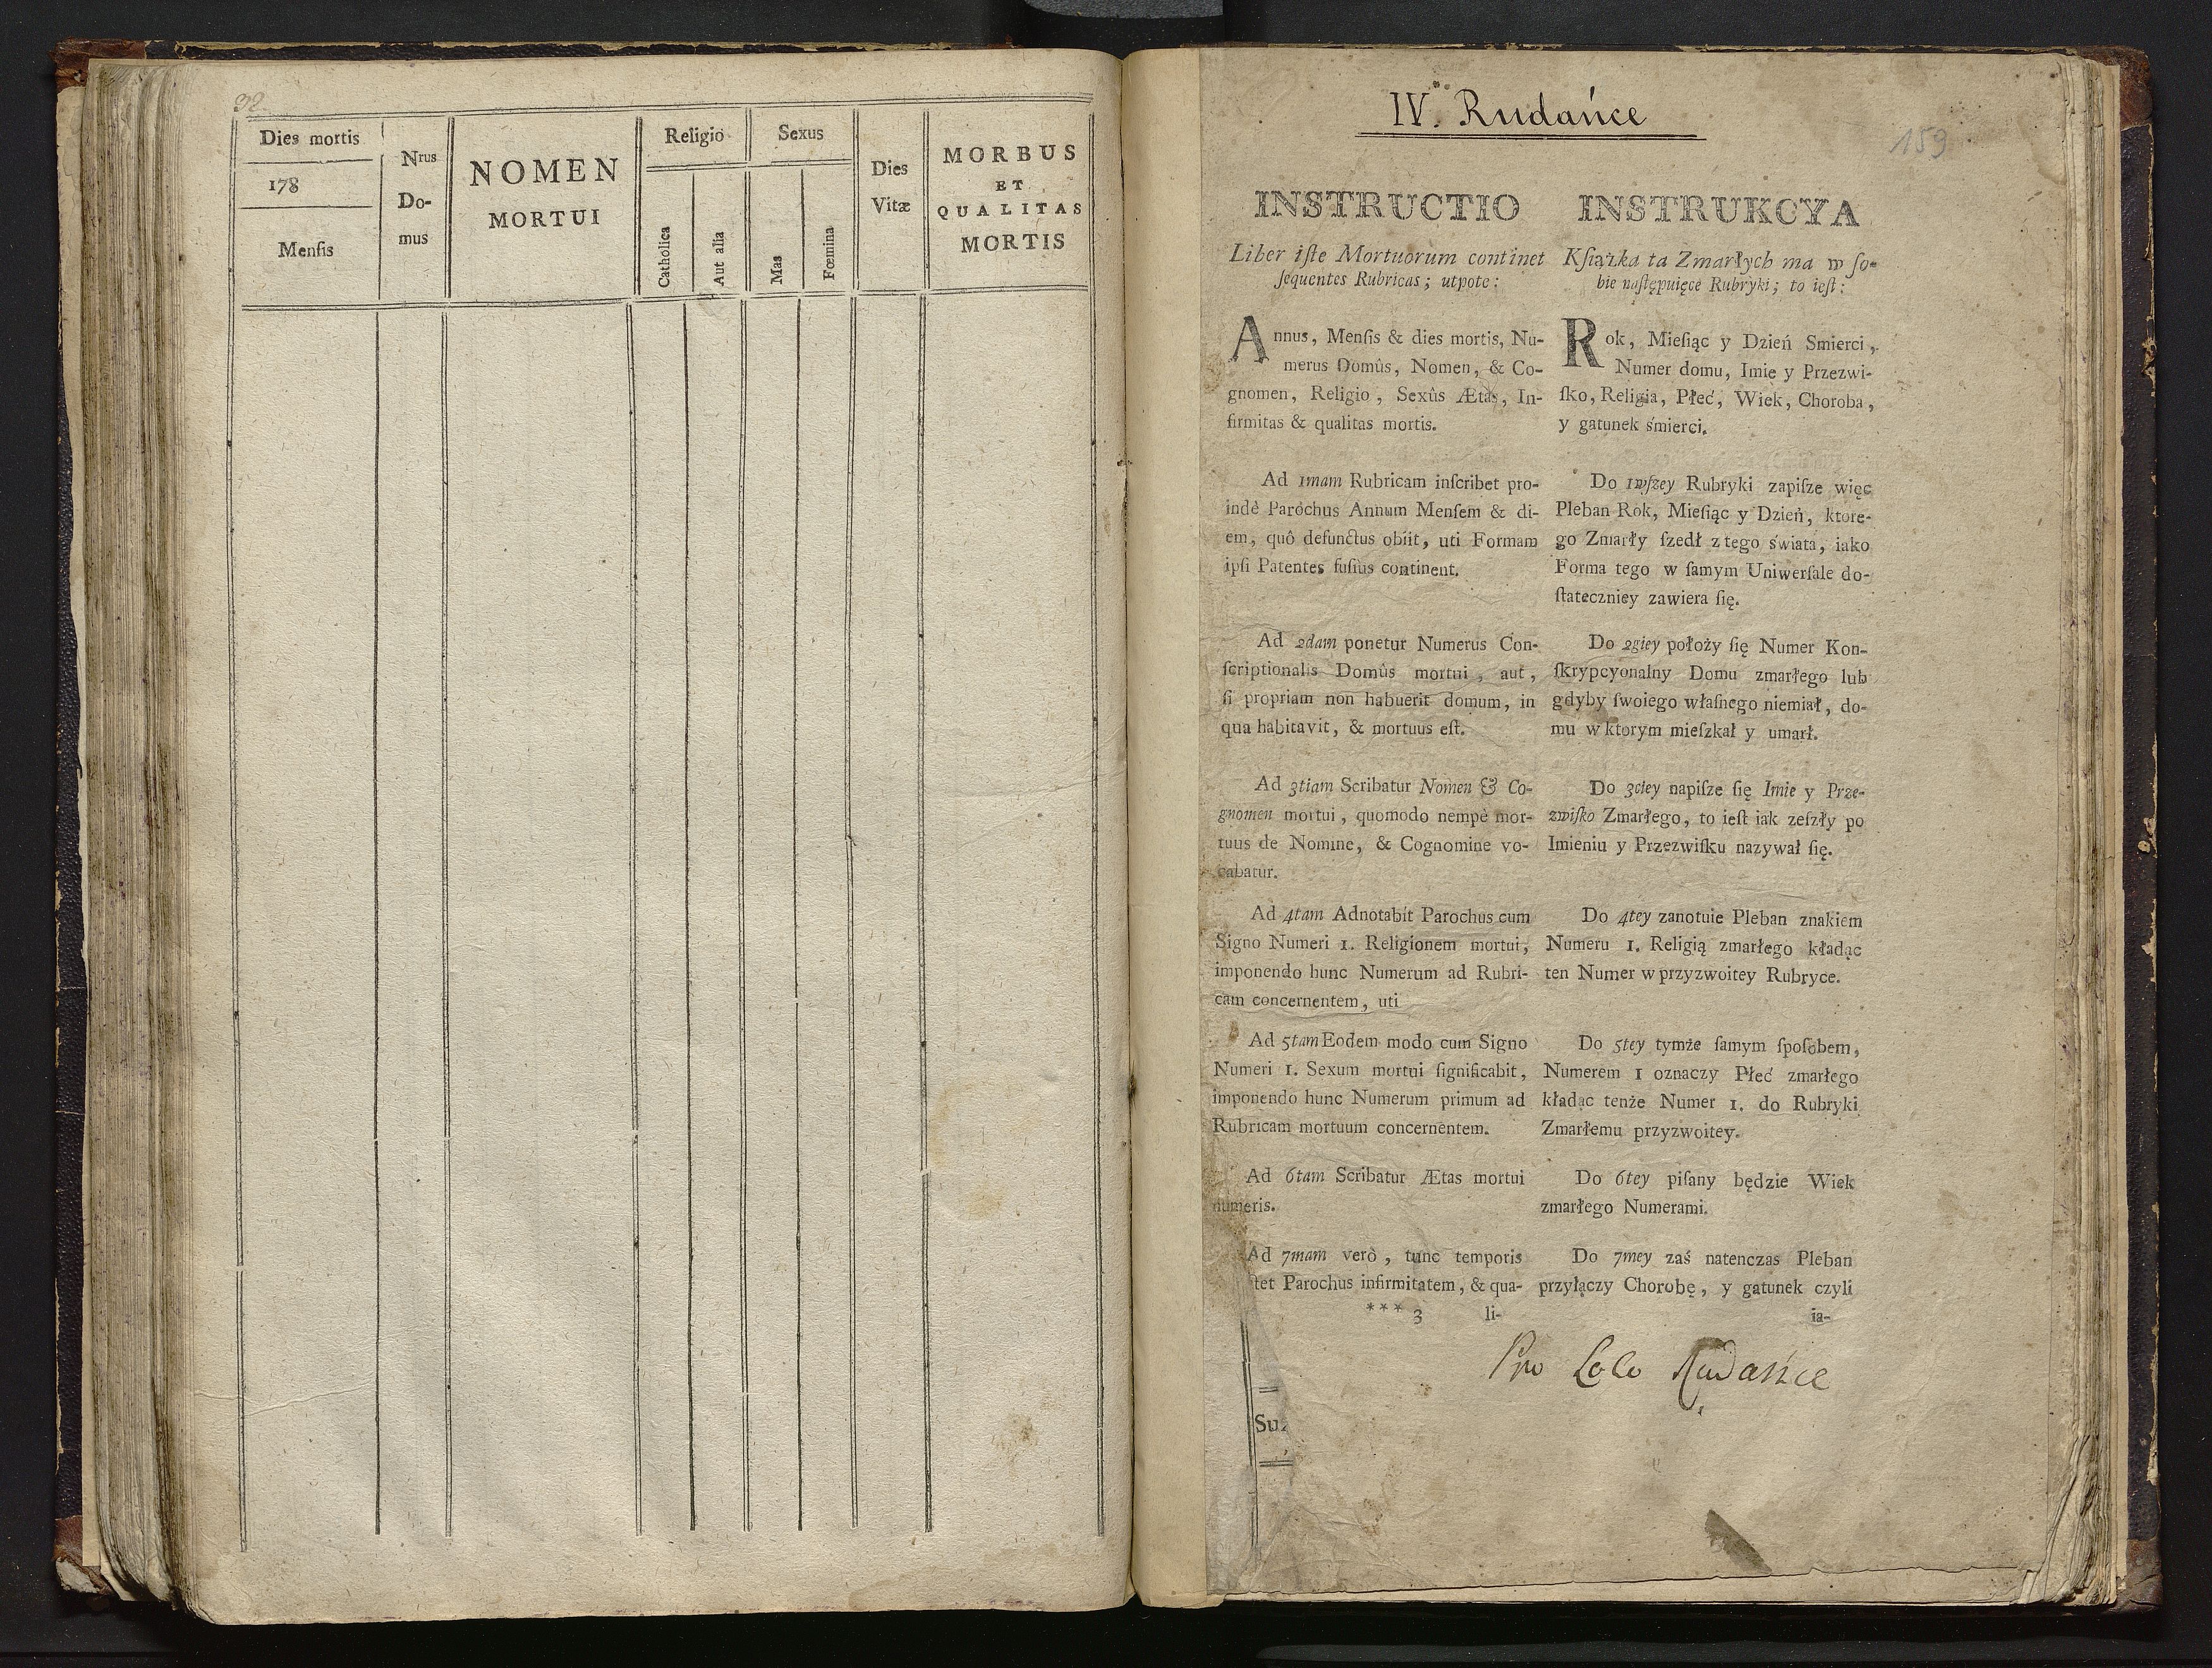 32
Dies mortis
178
Menſis
Nrus
Do-
mus
NOMEN
MORTUI
Religio
Catholica
Aut alia
Sexus
Mas
Fœmina
Dies
Vitæ
MORBUS
ET
QUALITAS
MORTIS
IV. Rudańce
159
INSTRUCTIO
Liber iſte Mortuorum continet
ſequentes Rubricas; utpote:
Annus, Menſis & dies mortis, Nu-
merus Domûs, Nomen, & Co-
gnomen, Religio, Sexûs Ætas, In-
firmitas & qualitas mortis.
Ad 1mam Rubricam inſcribet pro-
indè Parochus Annum Menſem & di-
em, quô defunctus obiit, uti Formam
ipſi Patentes fuſiùs continent.
Ad 2dam ponetur Numerus Con-
ſcriptionalis Domûs mortui, aut,
ſi propriam non habuerit domum, in
qua habitavit, & mortuus eſt.
Ad 3tiam Scribatur Nomen & Co-
gnomen mortui, quomodo nempè mor-
tuus de Nomine, & Cognomine vo-
cabatur.
Ad 4tam Adnotabit Parochus cum
Signo Numeri 1. Religionem mortui,
imponendo hunc Numerum ad Rubri-
cam concernentem, uti
Ad 5tam Eodem modo cum Signo
Numeri 1. Sexum mortui ſignificabit,
imponendo hunc Numerum primum ad
Rubricam mortuum concernentem.
Ad 6tam Scribatur Ætas mortui
numeris.
Ad 7mam verò, tunc temporis
tet Parochus infirmitatem, & qua-
*** 3 li-
INSTRUKCYA
Kſiązka ta Zmarłych ma w ſo-
bie naſtępuięce Rubryki; to ieſt:
Rok, Mieſiąc y Dzień Smierci,
Numer domu, Imie y Przezwi-
ſko, Religia, Płeć, Wiek, Choroba,
y gatunek śmierci.
Do 1wſzey Rubryki zapiſze więc
Pleban Rok, Mieſiąc y Dzień, ktore-
go Zmarły ſzedł z tego świata, iako
Forma tego w ſamym Uniwerſale do-
ſtateczniey zawiera ſię.
Do 2giey położy ſię Numer Kon-
ſkrypcyonalny Domu zmarłego lub
gdyby ſwoiego właſnego niemiał, do-
mu w ktorym mieſzkał y umarł.
Do 3ciey napiſze ſię Imie y Prze-
zwiſko Zmarłego, to ieſt iak zeſzły po
Imieniu y Przezwiſku nazywał ſię.
Do 4tey zanotuie Pleban znakiem
Numeru 1. Religią zmarłego kładąc
ten Numer w przyzwoitey Rubryce.
Do 5tey tymże ſamym ſpoſobem,
Numerem 1 oznaczy Płeć zmarłego
kładąc tenże Numer 1. do Rubryki
Zmarłemu przyzwoitey.
Do 6tey piſany będzie Wiek
zmarłego Numerami.
Do 7mey zaś natenczas Pleban
przyłączy Chorobę, y gatunek czyli
ia-
Pro Loco Rudańce